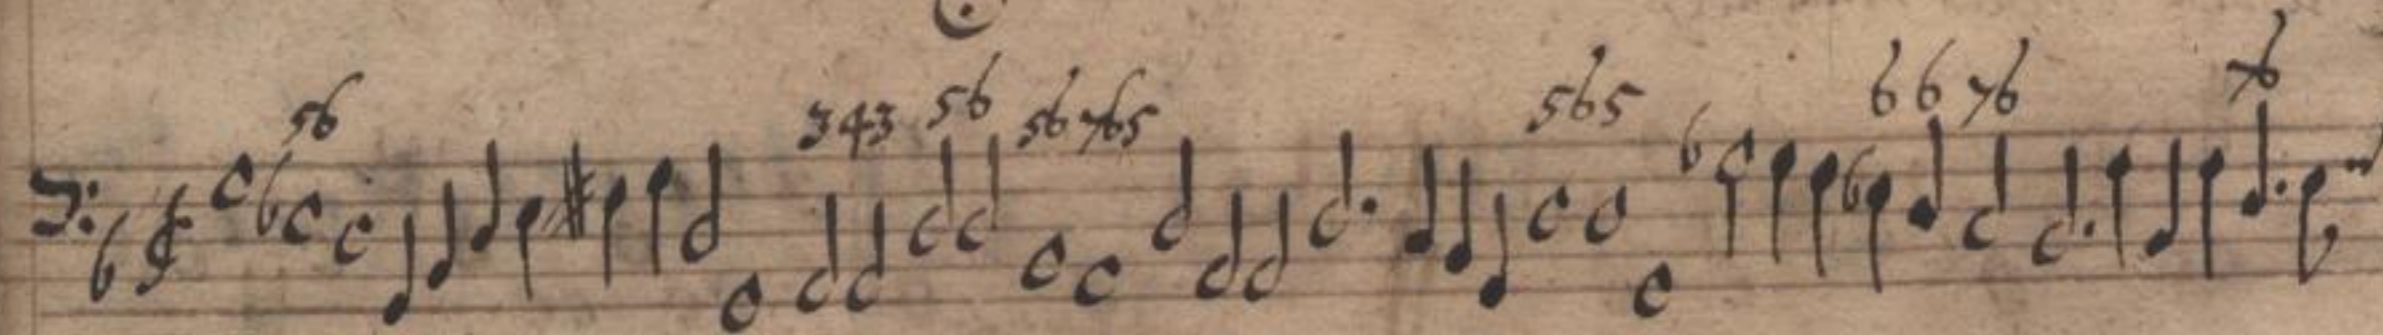 56 343 56 56 765 565 6 6 76 76